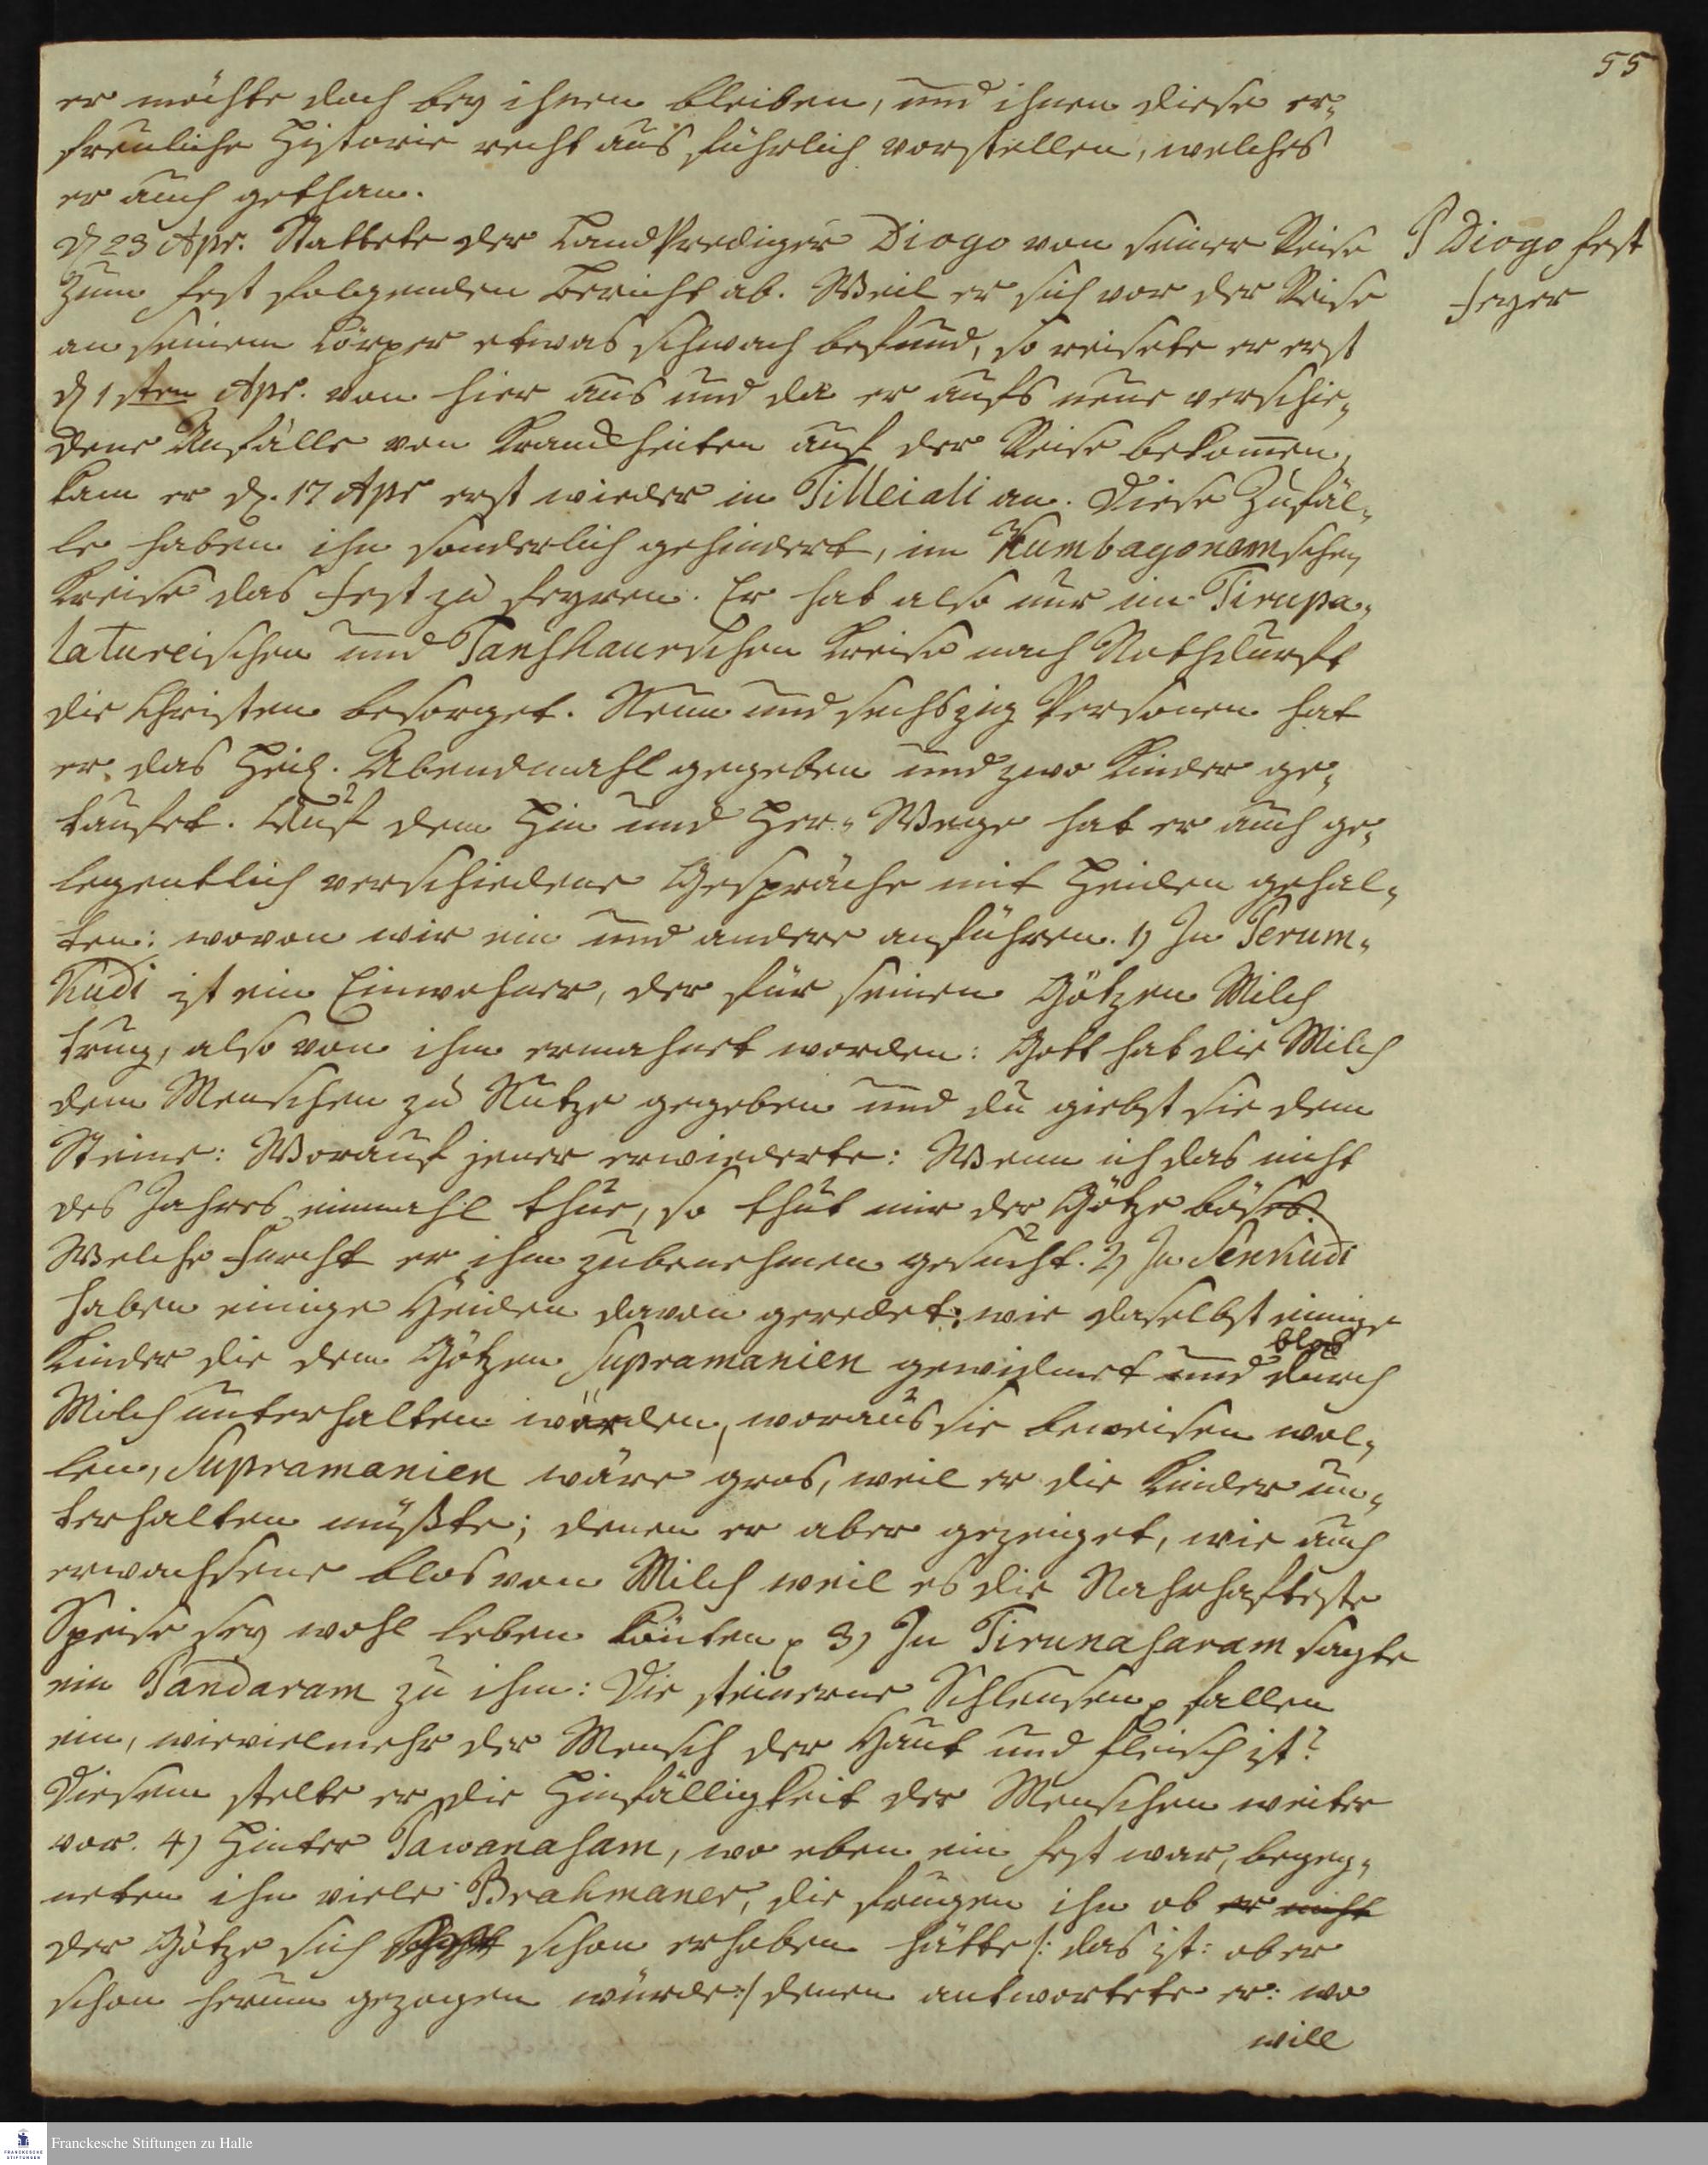 55
er möchte doch bey ihnen bleiben, und ihnen diese er-
freuliche Historie recht aus führlich vorstellen, welches
er auch gethan.
d 23 Apr. Stattete der Land Prediger Diogo von seiner Reise
zum fest folgenden Bericht ab. Weil er sich vor der Reise
an seinem Körper etwas schwach befund, so reisete er erst
d 1sten Apr. von hier aus und da er aufs neue verschie-
dene Anfälle von Kranckheiten auf der Reise bekom̄en,
kam er d. 17 Apr erst wieder in Tilleiali an. Diese Zufäl-
le haben ihn sonderlich gehindert, im Kumbagonamschen
Kreise das fest zu feyren. Er hat also nur im Tirupa-
latureischen und Tanshaurschen Kreise nach Nothdurft
die Christen besorget. Neun und sechszig Personen hat
er das Heil. Abendmahl gegeben und zwo Kinder ge-
taufet. Auf dem Hin und Her-Wege hat er auch ge-
legentlich verschiedene Gespräche mit Heiden gehal-
ten: wovon wir ein und andere anführen. 1) In Perum-
Kudi ist ein Einwohner, der für seinen Götzen Milch
trug, also von ihm ermahnet worden: Gott hat die Milch
dem Menschen zu Nutze gegeben und du giebst sie dem
Steine: Worauf jener erwiederte: Wenn ich das nicht
des Jahres einmahl thue, so thut mir der Götze böses.
Welche Furcht er ihm zubenehmen gesucht. 2) In Senkudi
haben einige Heiden davon geredet: wie daselbst einige
Kinder die dem Götzen Supramanien gewidmet und blos durch
Milch unterhalten würden, woraus sie beweisen wol-
len, Supramanien wäre gros, weil er die Kinder un-
terhalten müßte; denen er aber gezeiget, wie auch
erwachsene blos von Milch weil es die Nahrhafteste
Speise sey wohl leben könten p 3) In Tirunaharam sagte
ein Pandaram zu ihm: Die steinerne Schleusen p fallen
ein, wievielmehr der Mensch der Haut und fleisch ist?
Diesem stelte er die Hinfälligkeit der Menschen weiter
vor. 4) Hinter Pawanasam, wo eben ein fest war, begeg-
neten ihn viele Brahmaner, die frugen ihn ob er nicht
der Götze sich schon erhoben hätte /: das ist: ob er
schon herum gezogen würde :/ denen antwortete er: wo
will
P Diogo fest
feyer
Franckesche Stiftungen zu Halle
FRANCKESCHE
STIFTUNGEN